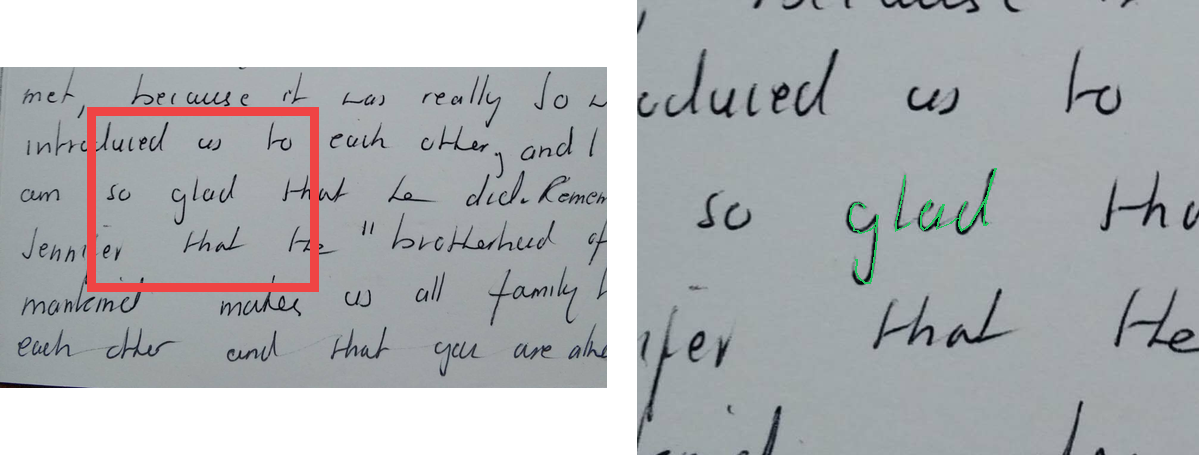 met, because it was really so
introduced us to each other, and I
am so glad that he did. Remem
Jennifer that the "brotherhood of
mankind makes us all family
each other and that you are
oduced us to
so glad tha
ifer that the